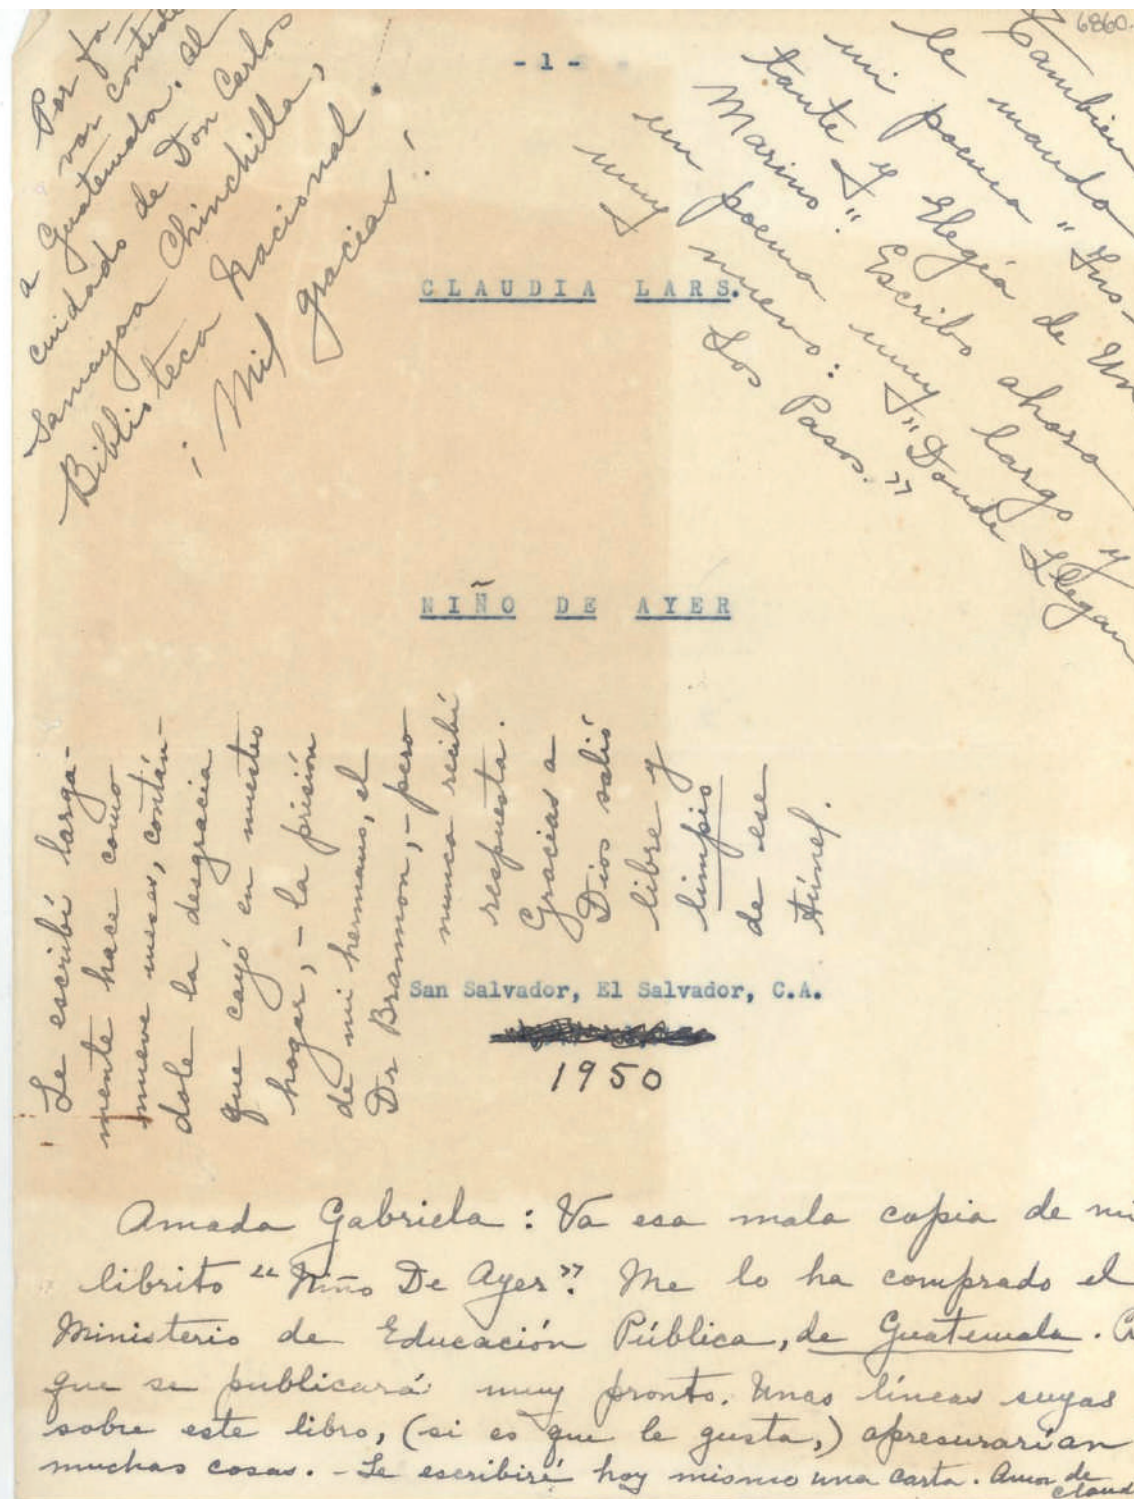 6860
- 1 -
Por fa
vor contéste
a Guatemala. Al
cuidado de Don Carlos
Samayoa Chinchilla,
Biblioteca Nacional.
¡Mil gracias!
También
le mando
mi poema "Ins-
tante y Elegía de Un
Marino". Escribo ahora
un poema muy largo y
muy nuevo: "Donde Llegan
Los Pasos."
CLAUDIA LARS.
NIÑO DE AYER
Le escribí larga-
mente hace como
nueve meses, contán-
dole la desgracia
que cayó en nuestro
hogar, - la prisión
de mi hermano, el
Dr Brannon, - pero
nunca recibí
respuesta.
Gracias a
Dios salió
libre y
limpio
de ese
túnel.
San Salvador, El Salvador, C.A.
1950
Amada Gabriela: Va esa mala copia de mi
librito "Niño De Ayer". Me lo ha comprado el
Ministerio de Educación Pública, de Guatemala.
que se publicará muy pronto. Unas líneas suyas
sobre este libro, (si es que le gusta,) apresurarían
muchas cosas. - Le escribiré hoy mismo una carta. Amor de
Claud